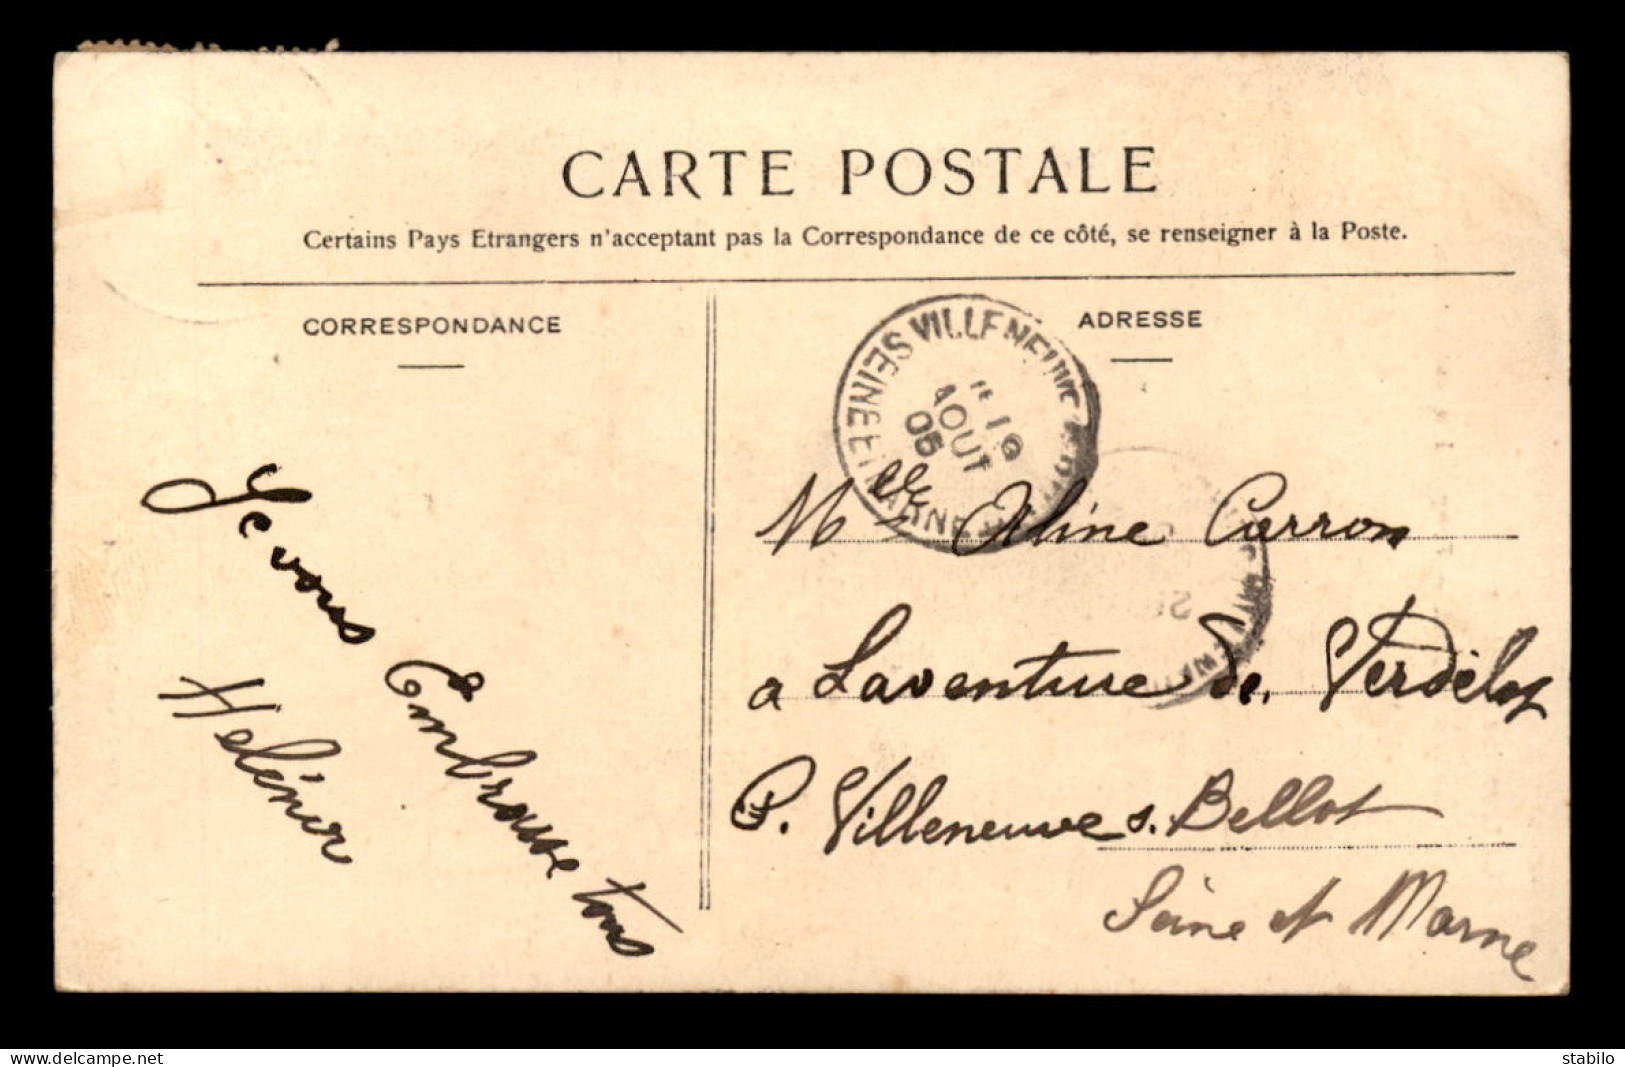 CARTE POSTALE
Certains Pays Etrangers n'acceptant pas la Correspondance de ce côté, se renseigner à la Poste.
CORRESPONDANCE
ADRESSE
VILLENEUVE
SEINE ET MARNE
19
AOUT
05
Je vous Embrasse tous
Mlle Aline Carron
a Laventure de Verdélot
P. Villeneuve s. Bellot
Seine et Marne
www.delcampe.net
stabilo